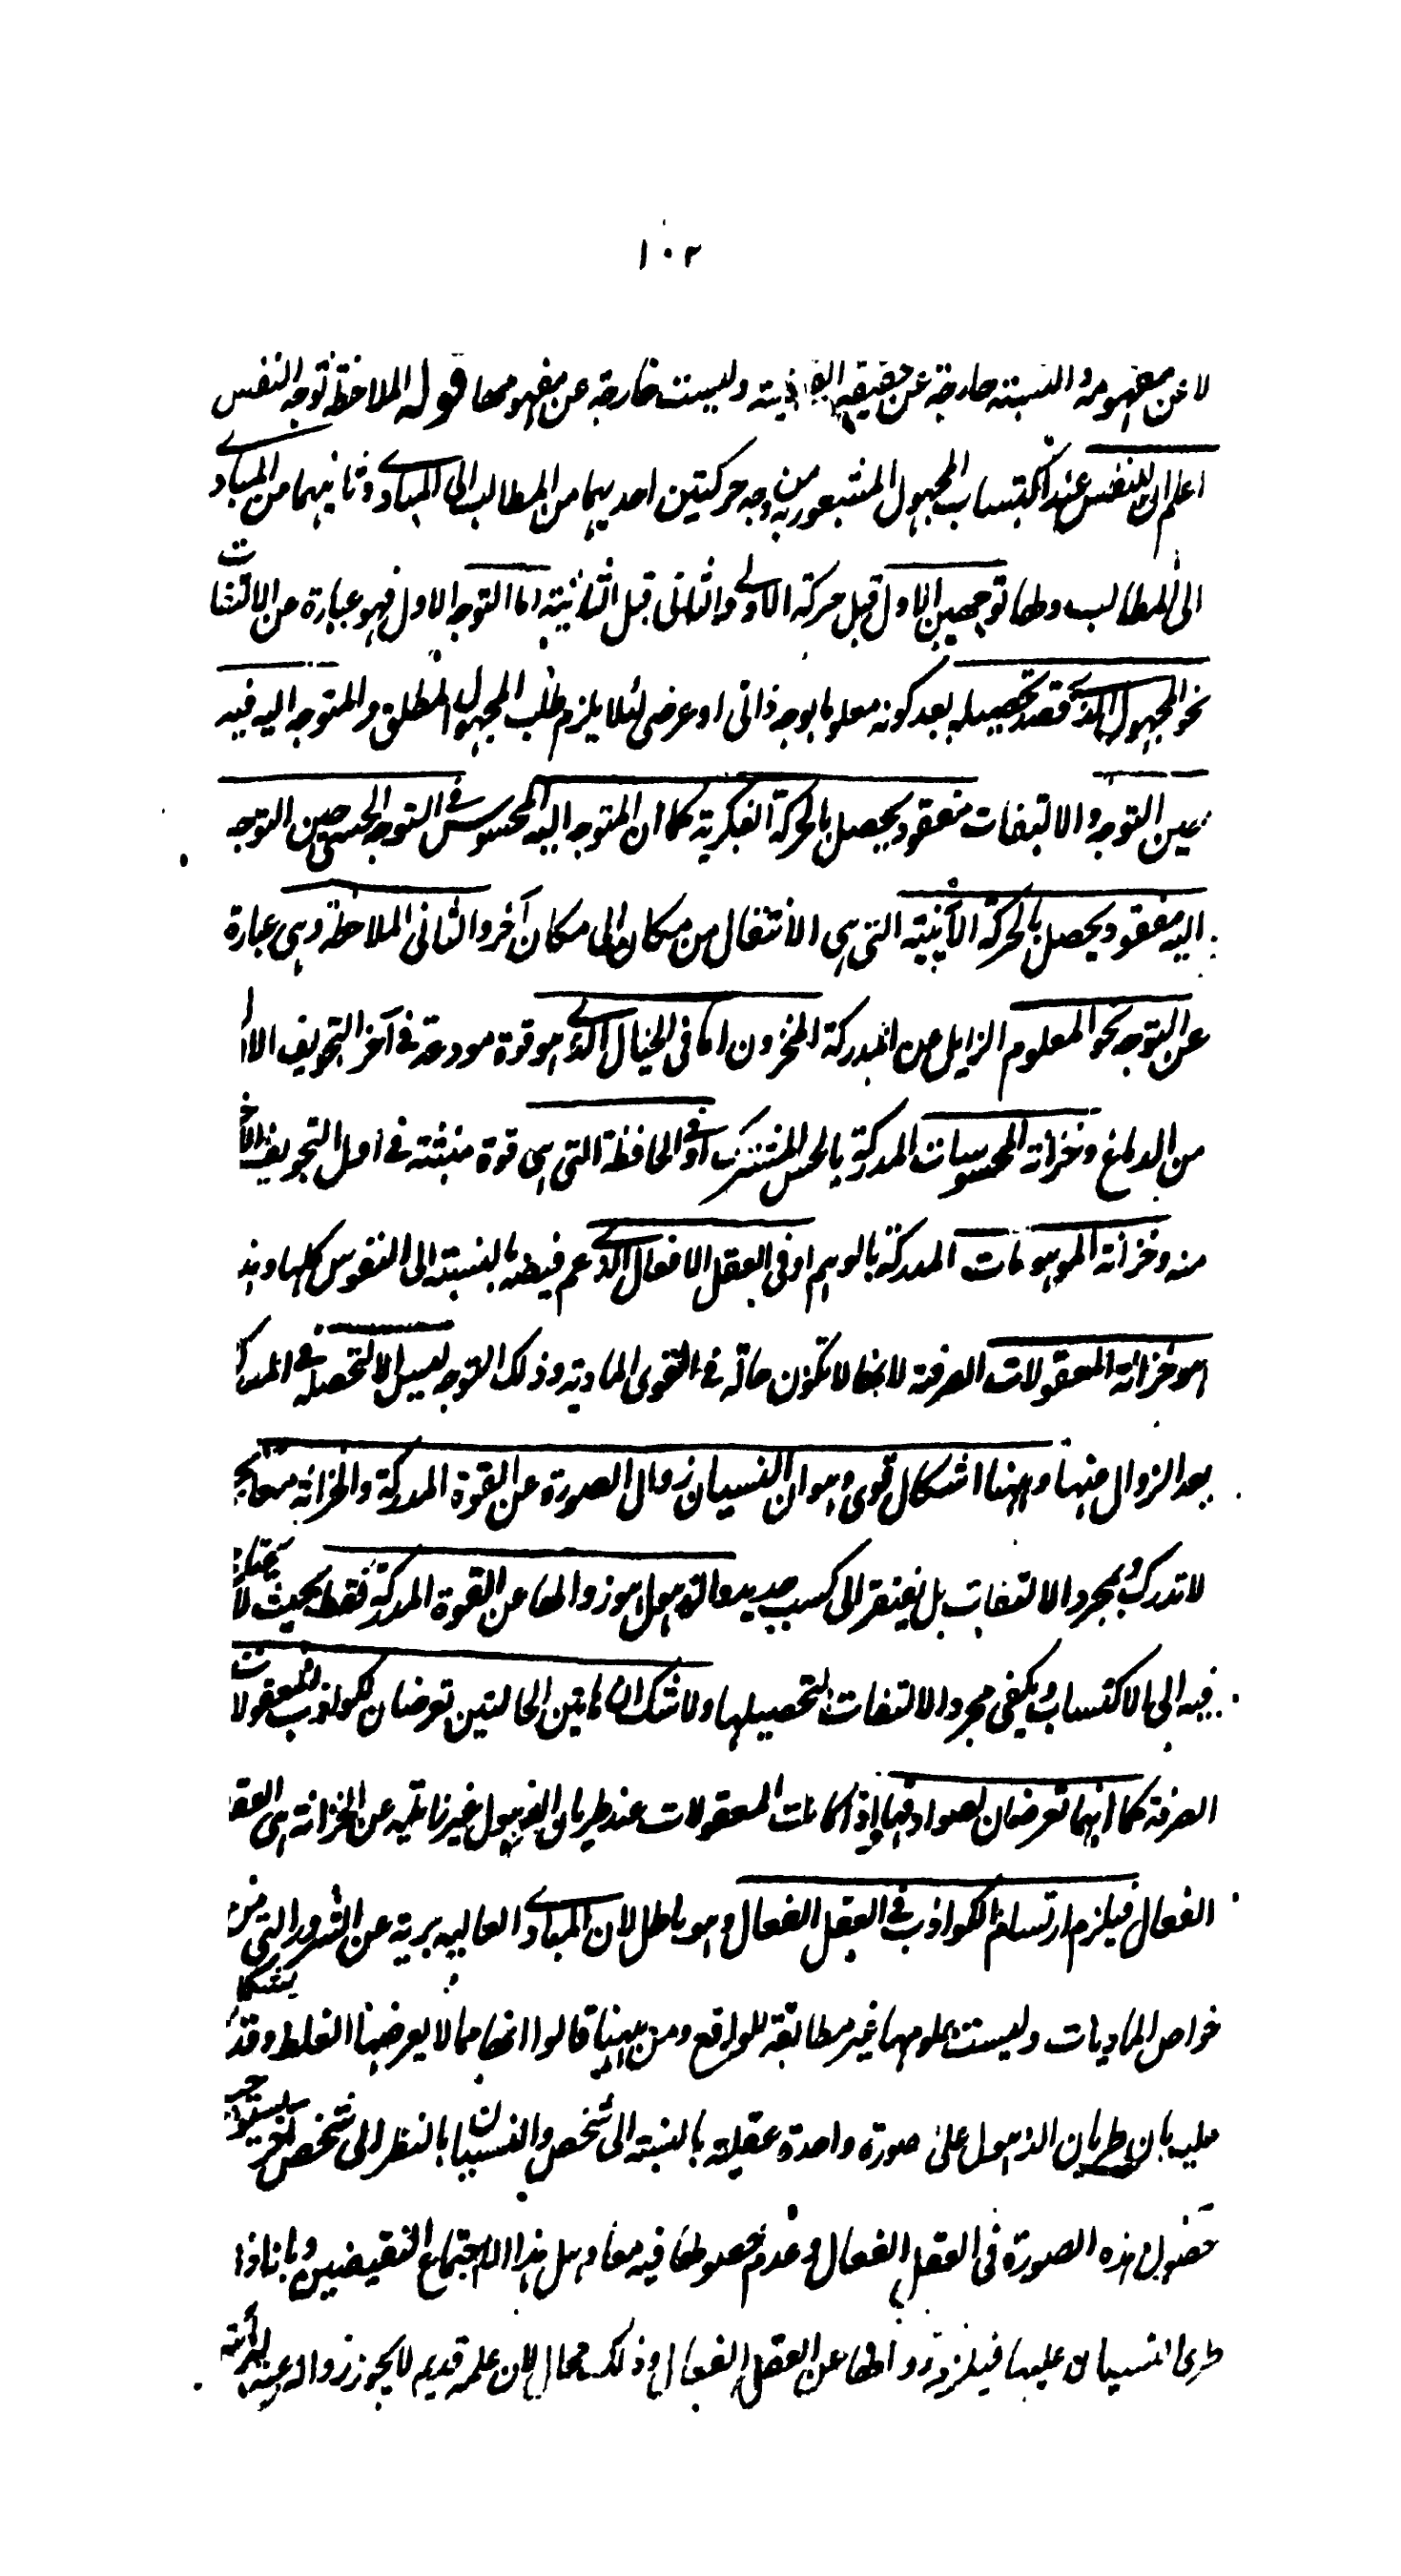 ١٠٢
لا عن مفهومه والنسبته خارجة عن حقيقة وليست خارجة عن مفهومها قوله الملاحظة توجه النفس
اعلم ان للنفس عند اكتساب المجهول المشعور به من وجه حركتين احديهما من المطالب الى المبادى وثانيهما من المبادى
الى المطالب ولها توجهين الاول قبل حركة الاولى والثانى قبل الثانية اما التوجه الاول فهو عبارة عن الالتفات
نحو المجهول الذى قصد تحصيله بعد كونه معلوما بوجه ذاتى او عرضى لئلا يلزم طلب المجهول المطلق والمتوجه اليه فيه
حين التوجه والالتفات مفقود يحصل بالحركة الفكرية كما ان المتوجه اليه المحسوس فى التوجه الحسى حين التوجه
اليه مفقود يحصل بالحركة الأينية التى هى الانتقال من مكان الى مكان آخر والثانى الملاحظة وهى عبارة
عن التوجه نحو المعلوم الزايل عن المدركة المخزون اما فى الخيال الذى هو قوة مودعة فى آخر التجويف الاول
من الدماغ وخزانة المحسوسات المدركة بالحس المشترك او فى الحافظة التى هى قوة منبثة فى اول التجويف الآخر
منه وخزانة الموهومات المدركة بالوهم او فى العقل الافعال الذى عم فيضه بالنسبته الى النفوس كلها وهذ
هو خزانة المعقولات الصرفة لانها لا تكون حالة فى القوى المادية وذلك التوجه لعييل الا لتحصله فى المدركة
بعد الزوال منها وههنا اشكال قوى وهو ان النسيان زوال الصورة عن القوة المدركة والخزانة معا بحيث
لا تدرك بمجرد الالتفات بل يفتقر الى كسب جديد والذهول هو زوالها عن القوة المدركة فقط بحيث لا يحتاج
فيه الى الاكتساب ويكفى مجرد الالتفات لتحصيلها ولا شك ان هاتين الحالتين تعرضان لكواذب المعقولات
الصرفة كما انهما تعرضان لصوادقها وإذا كانت المعقولات عند طريان الذهول غير زائلة عن الخزانة هى العقل
الفعال فيلزم ارتسام الكواذب فى العقل الفعال وهو باطل لان المبادى العاليه برية عن الشرور التى من
خواص الماديات وليست علومها غير مطابقة للواقع ومن ههنا قالوا انها مما لا يعرضها الغلط وقد يشكل
عليه بان طريان الذهول على صورة واحدة عقلية بالنسبة الى شخص والنسيان بالنظر الى شخص آخر يستوجب
حصول هذه الصورة فى العقل الفعال وعدم حصولها فيه معا وهل هذا الا اجتماع النقيضين وبانا اذا
طرئ النسيان عليها فيلزم زوالها عن العقل الفعال وذلك محال لان علمه قديم لا يجوز زواله عنه لبرأته